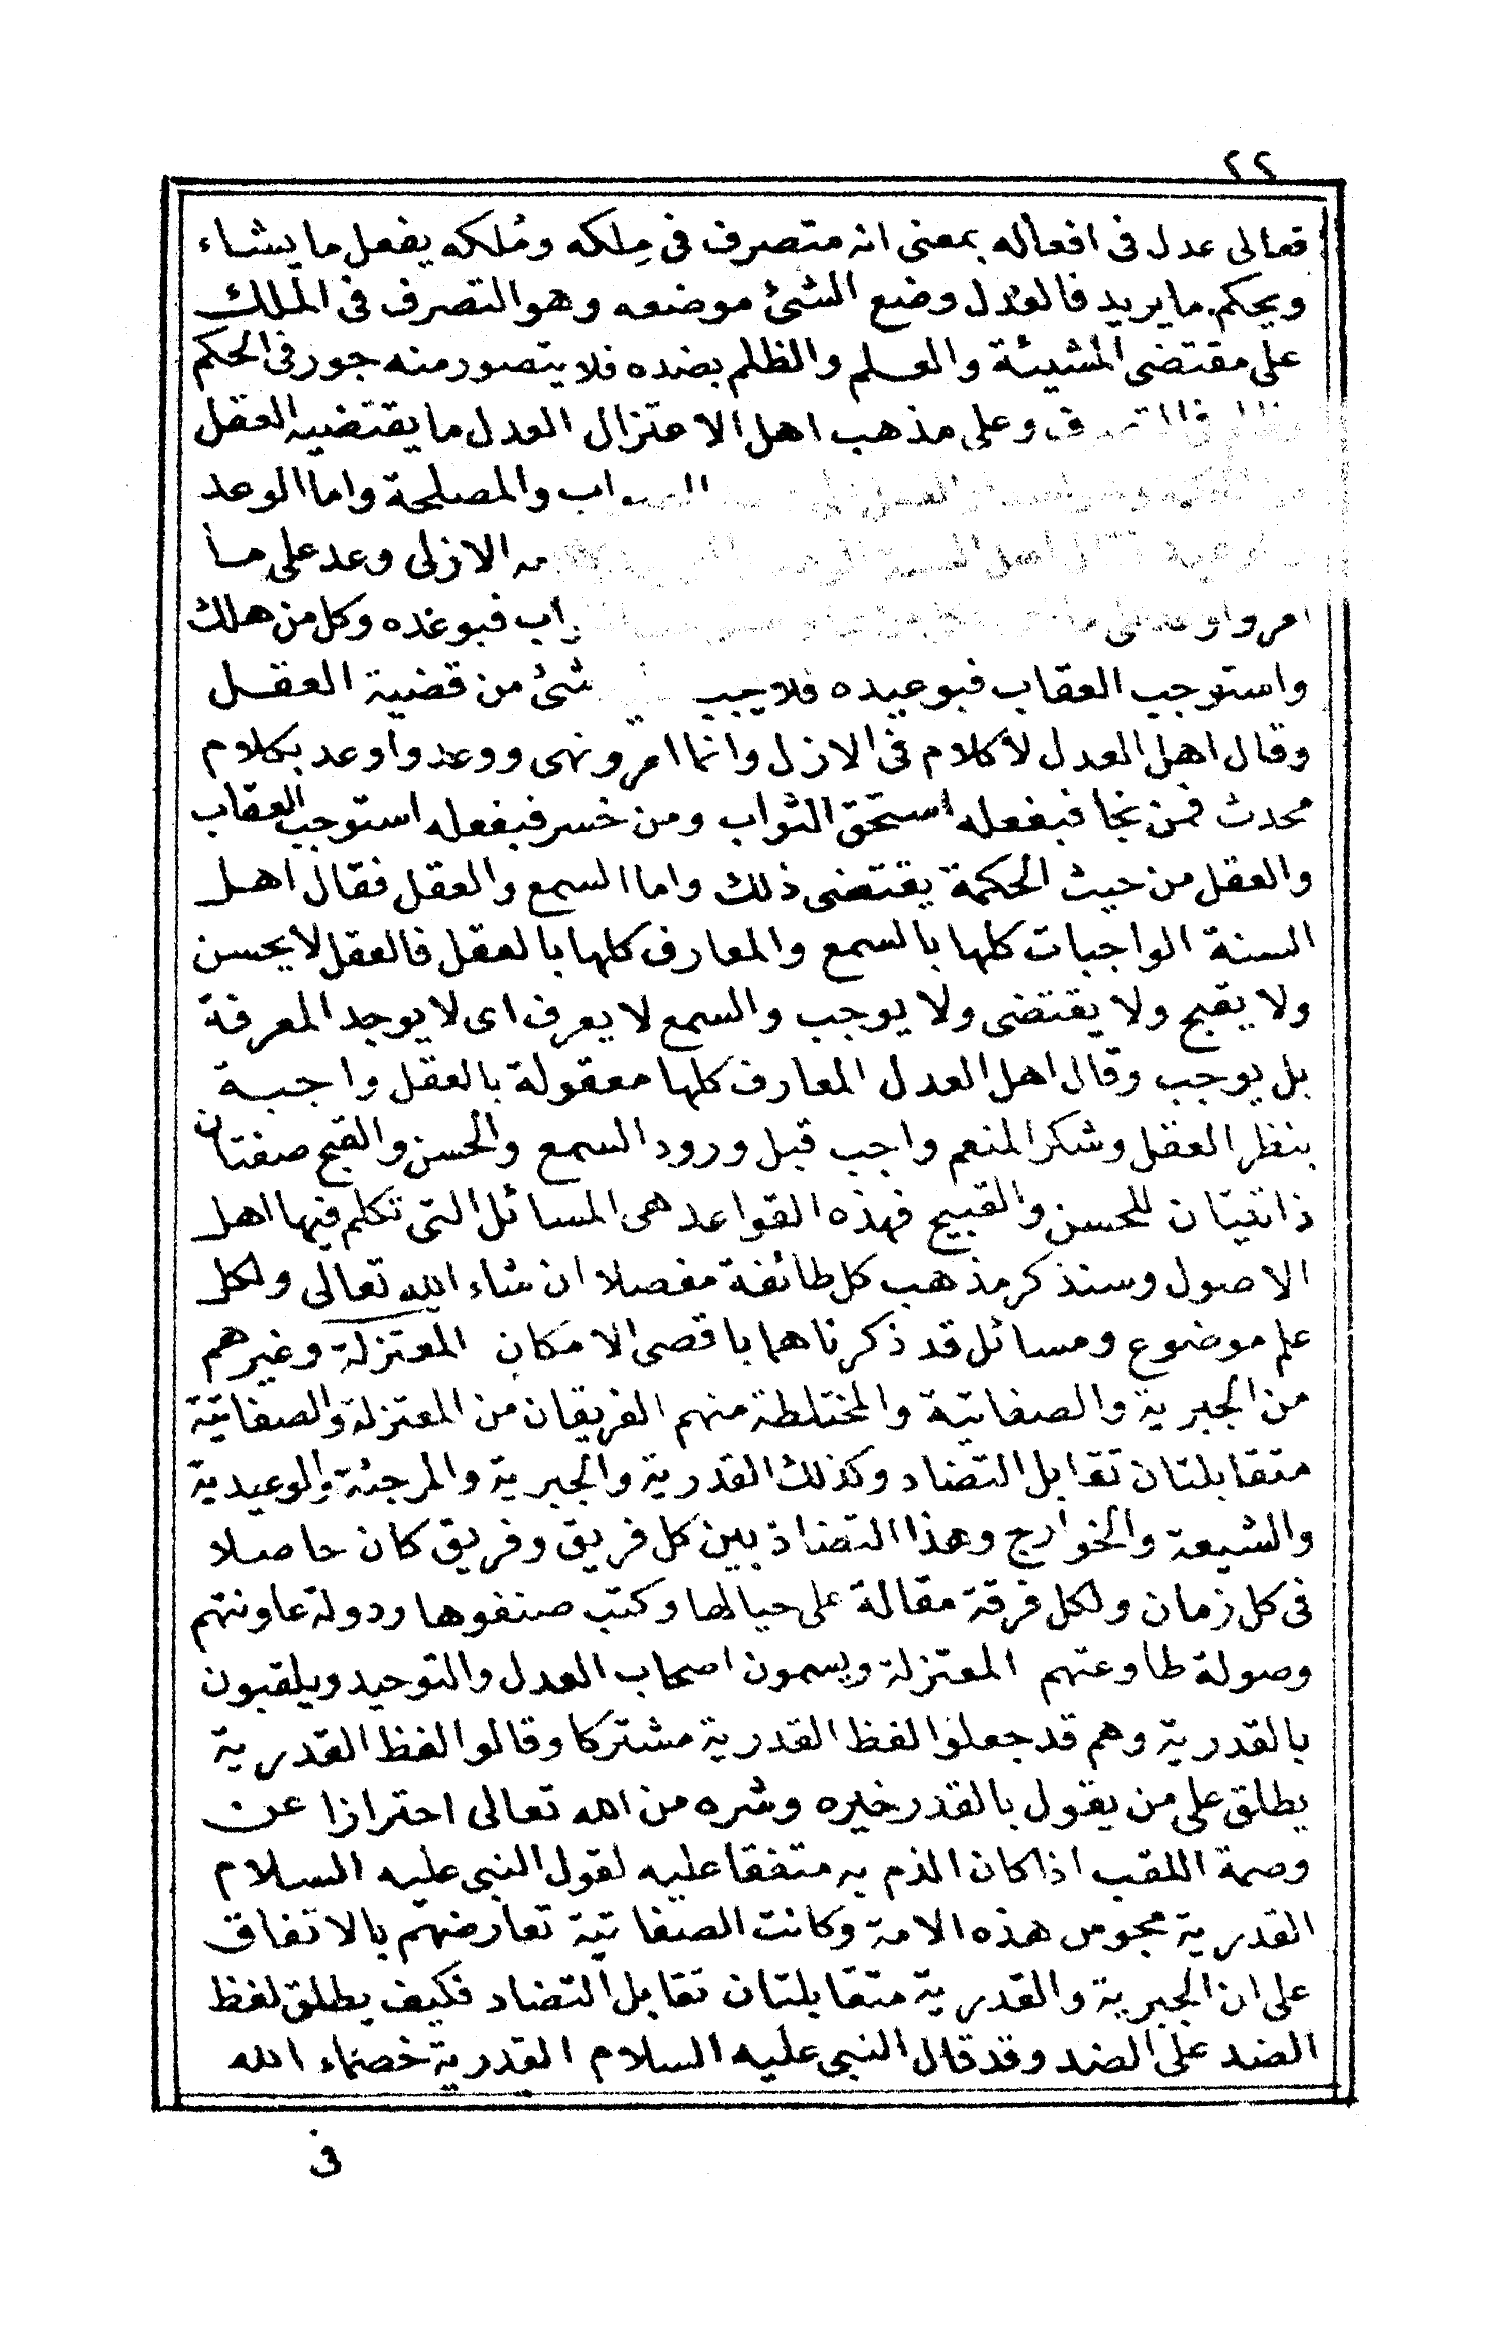 ٢٢
تعالى عدل فى افعاله بمعنى انه متصرف فى مِلكه ومُلكه يفعل ما يشاء
ويحكم ما يريد فالعدل وضع الشئ موضعه وهو التصرف فى الملك
على مقتضى المشيئة والعلم والظلم بضده فلا يتصور منه جور فى الحكم
وعلى مذهب اهل الاعتزال العدل ما يقتضيه العقل
والمصلحة واما الوعد
الازلى وعد على ما
امر واوعد على فبوعده وكل من هلك
واستوجب العقاب فبوعيده فلا يجب شئ من قضية العقل
وقال اهل العدل لا كلام فى الازل وانما امر ونهى ووعد واوعد بكلام
محدث فمن نجا فبفعله استحق الثواب ومن خسر فبفعله استوجب العقاب
والعقل من حيث الحكمة يقتضى ذلك واما السمع والعقل فقال اهل
السنة الواجبات كلها بالسمع والمعارف كلها بالعقل فالعقل لا يحسن
ولا يقبح ولا يقتضى ولا يوجب والسمع لا يعرف اى لا يوجد المعرفة
بل يوجب وقال اهل العدل المعارف كلها معقولة بالعقل واجبة
بنظر العقل وشكر المنعم واجب قبل ورود السمع والحسن والقبح صفتان
ذاتيتان للحسن والقبيح فهذه القواعد هى المسائل التى تكلم فيها اهل
الاصول وسنذكر مذهب كل طائفة مفصلا ان شاء الله تعالى ولكل
علم موضوع ومسائل قد ذكرناهما باقصى الامكان المعتزلة وغيرهم
من الجبرية والصفاتية والمختلطة منهم الفريقان من المعتزلة والصفاتية
متقابلتان تقابل التضاد وكذلك القدرية والجبرية والمرجئة والوعيدية
والشيعة والخوارج وهذا التضاد بين كل فريق وفريق كان حاصلا
فى كل زمان ولكل فرقة مقالة على حيالها وكتب صنفوها ودولة عاونتهم
وصولة طاوعتهم المعتزلة ويسمون اصحاب العدل والتوحيد ويلقبون
بالقدرية وهم قد جعلوا لفظ القدرية مشتركا وقالوا لفظ القدرية
يطلق على من يقول بالقدر خيره وشره من الله تعالى احترازا عن
وصمة اللقب اذا كان الذم به متفقا عليه لقول النبى عليه السلام
القدرية مجوس هذه الامة وكانت الصفاتية تعارضهم بالاتفاق
على ان الجبرية والقدرية متقابلتان تقابل التضاد فكيف يطلق لفظ
الضد على الضد وقد قال النبى عليه السلام القدرية خصماء الله
فى